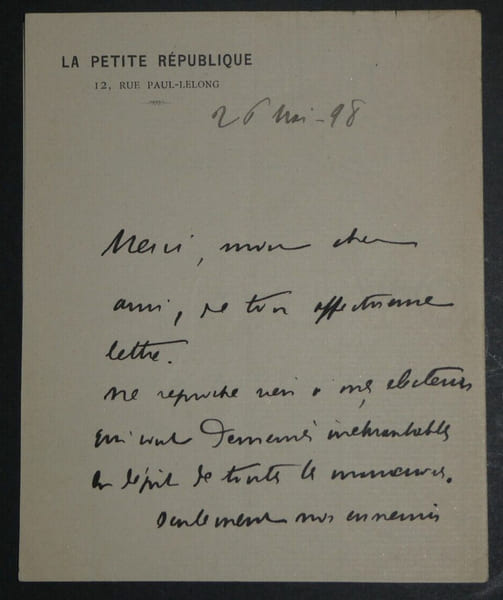 LA PETITE RÉPUBLIQUE
12, RUE PAUL-LELONG
26 Mai - 98
Merci, mon cher
ami, de ton affectueuse
lettre.
ne reproche rien à mes électeurs
qui sont demeurés inébranlables
en dépit de toutes les manœuvres.
seulement nos ennemis